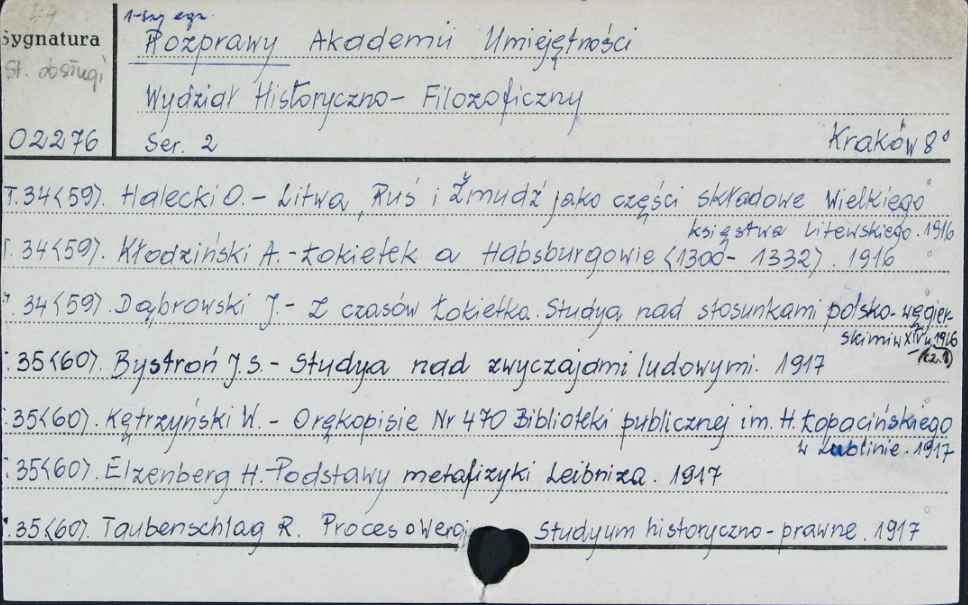 1-szy egz.
Sygnatura
Rozprawy Akademii Umiejętności
St. obsługi
Wydział Historyczno- Filozoficzny
02276 Ser. 2 Kraków 8°
T. 34<59>. Halecki O. - Litwa, Ruś i Żmudź jako części składowe Wielkiego
księstwa Litewskiego. 1916
T. 34<59>. Kłodziński A. - Łokietek a Habsburgowie <1300- 1332>. 1916
T. 34<59>. Dąbrowski J. - Z czasów Łokietka. Studya nad stosunkami polsko-węgier
skimi w XIV w. 1916
(cz. 1)
T. 35<60>. Bystroń J.S. - Studya nad zwyczajami ludowymi. 1917
T. 35<60>. Kętrzyński W. - O rękopisie Nr 470 Biblioteki publicznej im. H. Łopacińskiego
w Lublinie. 1917
T. 35<60>. Elzenberg H. - Podstawy metafizyki Leibniza. 1917
T. 35<60>. Taubenschlag R. Proces o Studyum historyczno-prawne. 1917